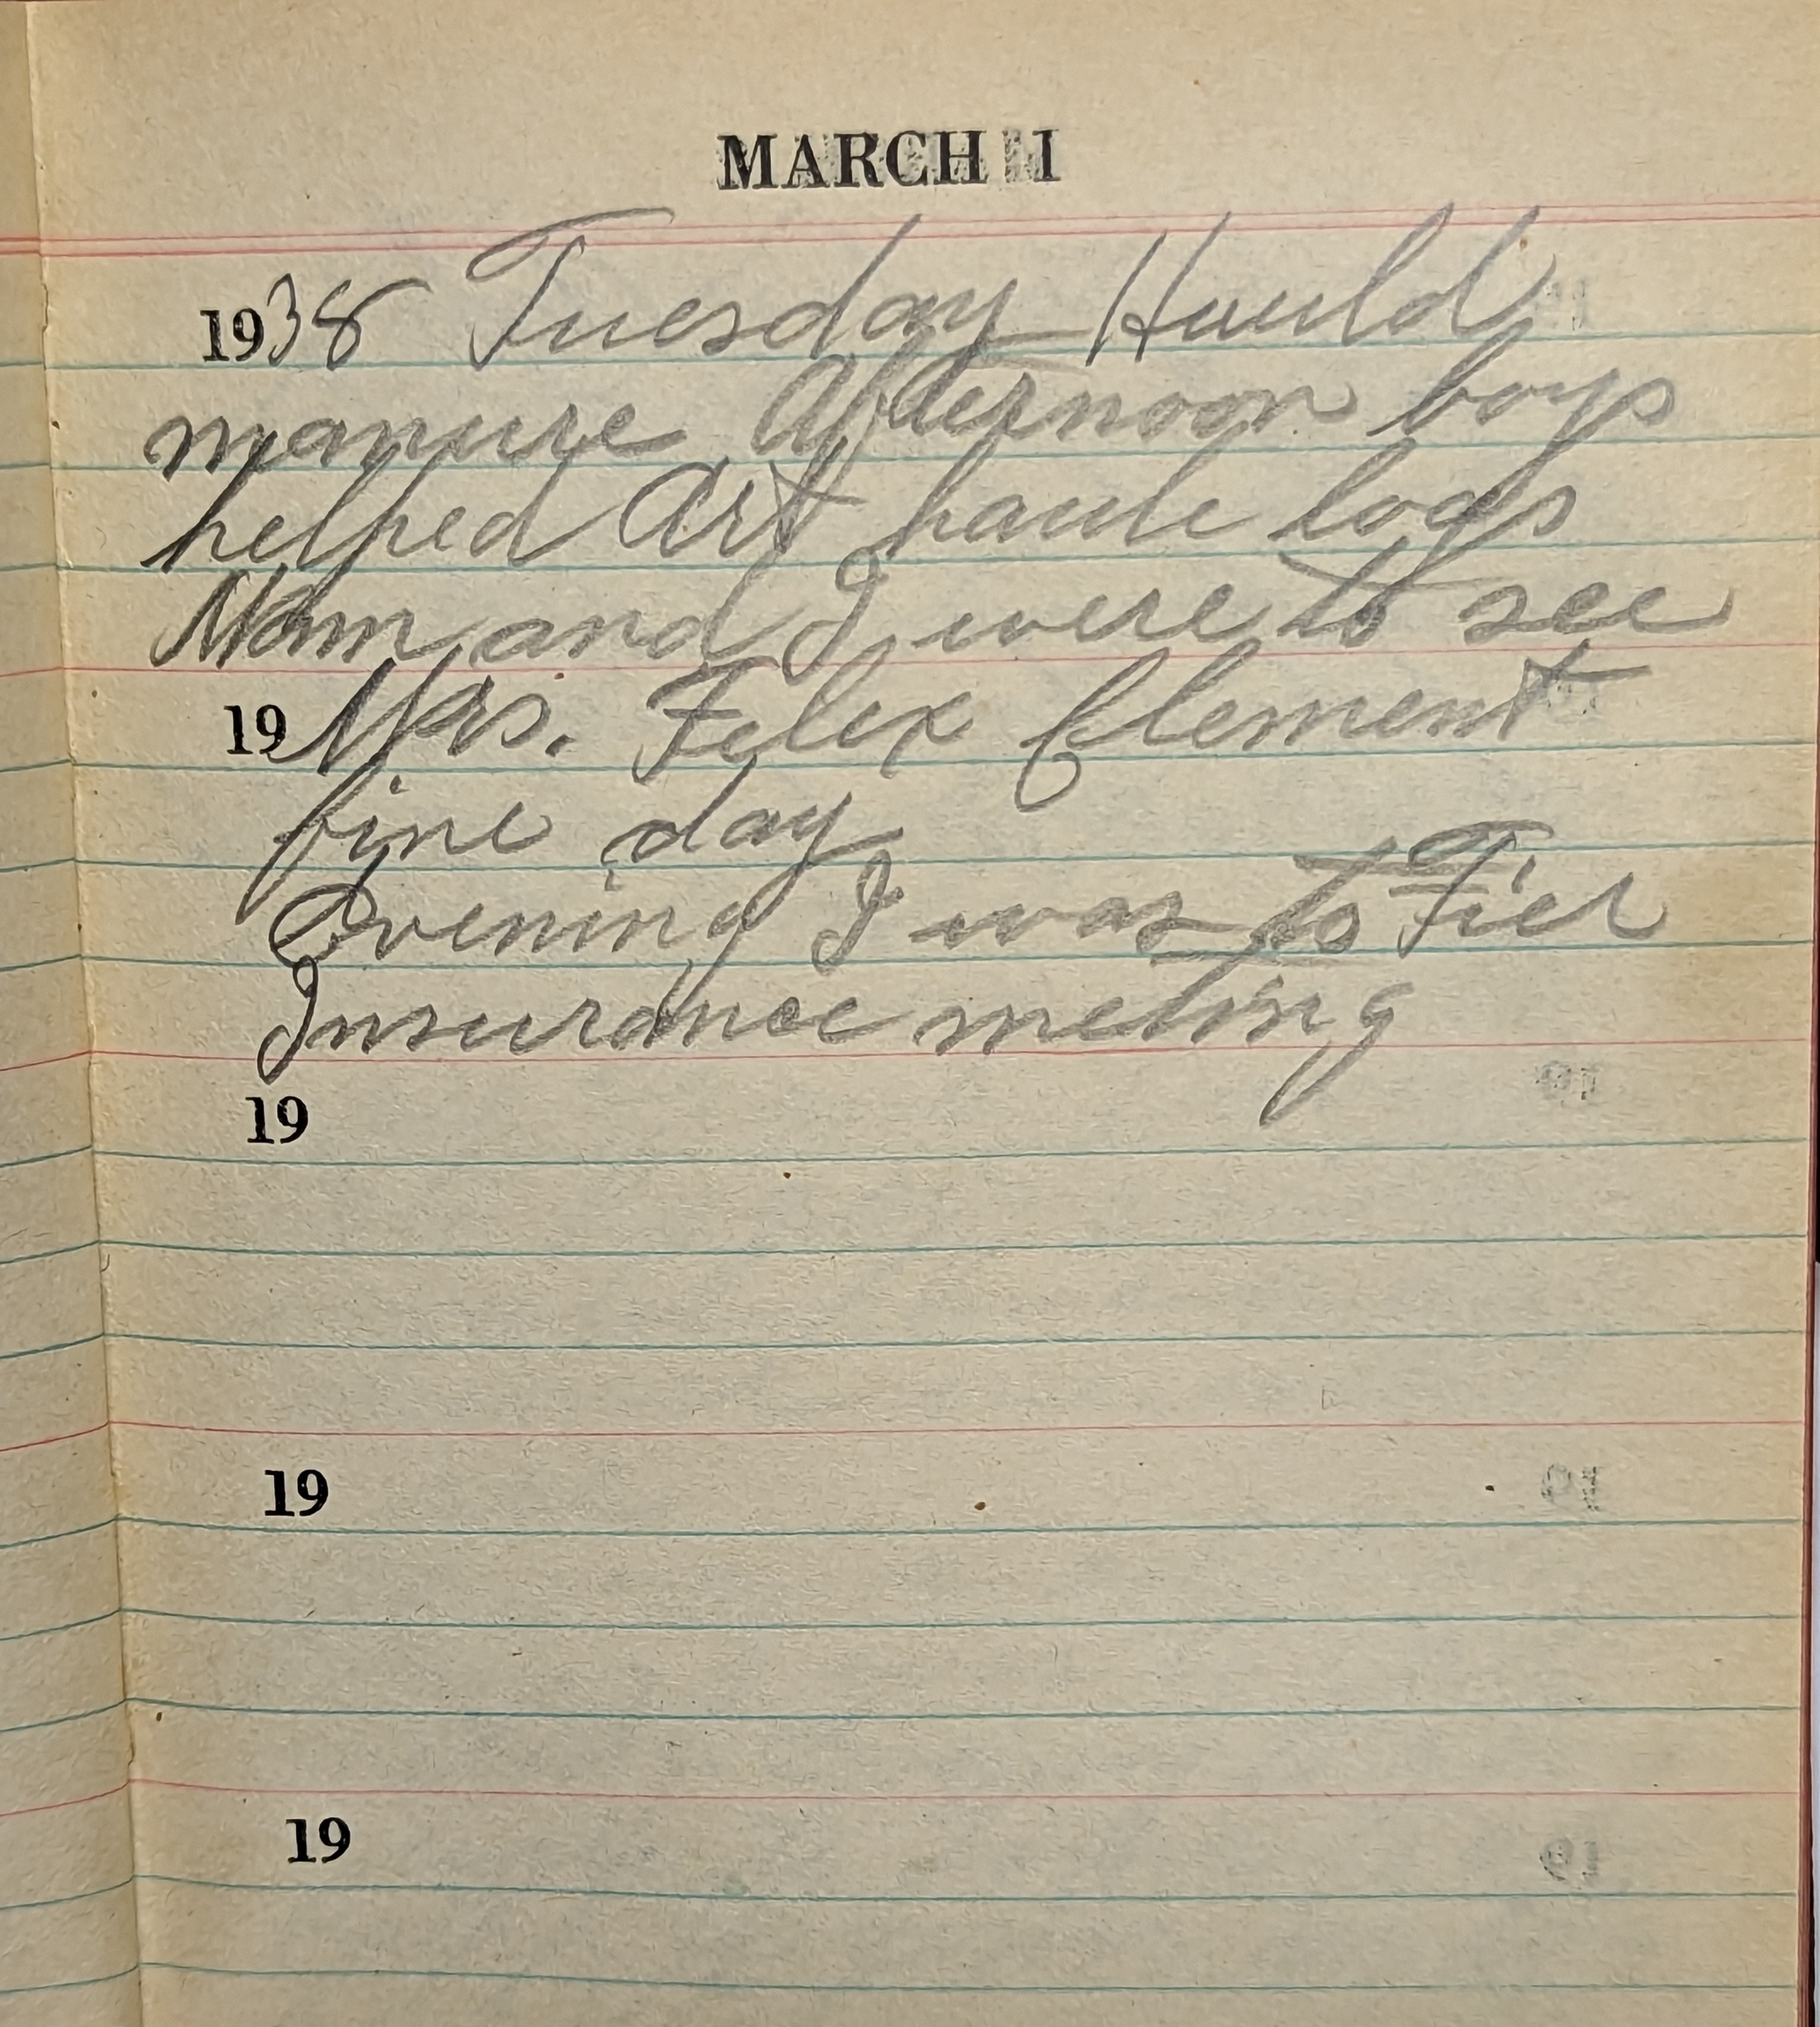 MARCH 1
1938 Tuesday Hauld
manure Afternoon boys
helped Art haule logs
Mom and I were to see
19 Mrs. Felix Clement
fine day
Evening I was to Fier
Insurance meting
19
19
19